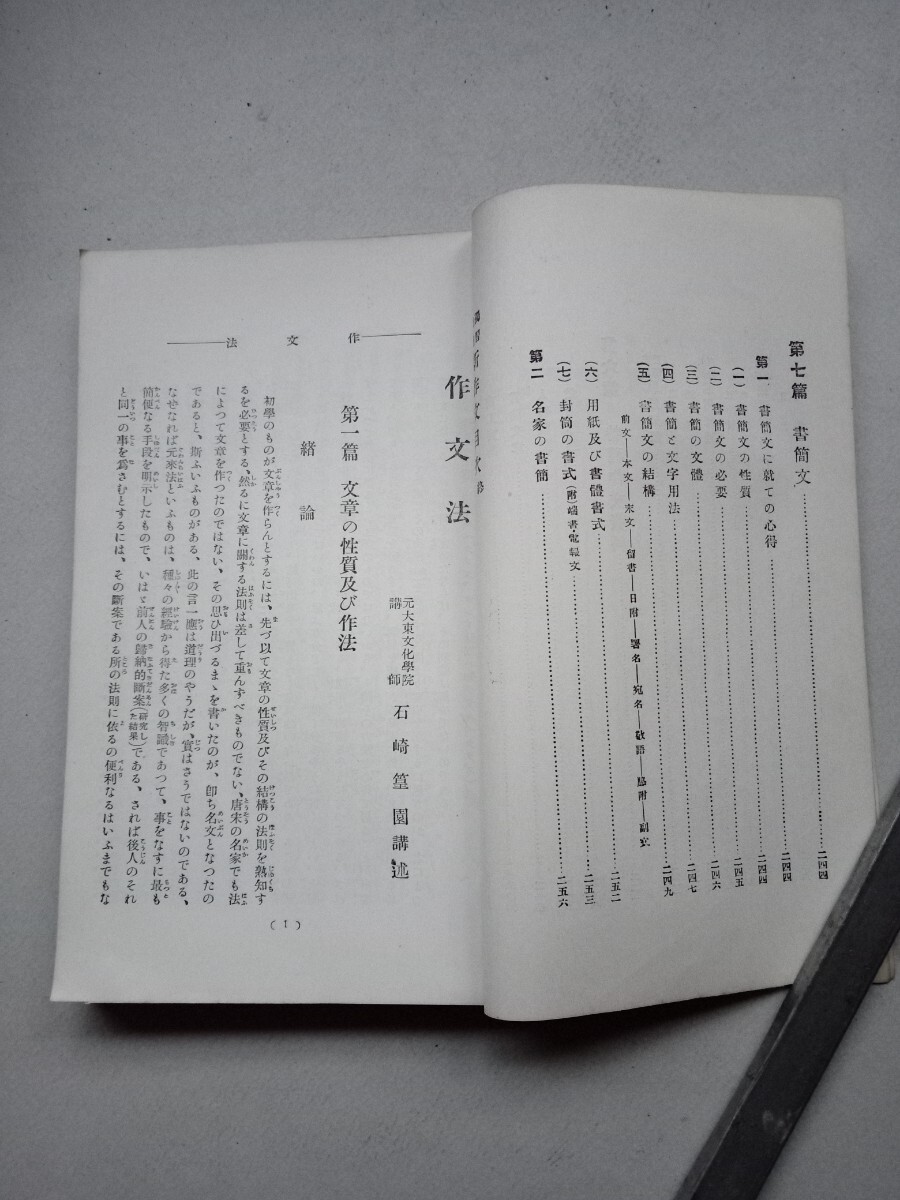 第七篇 書簡文……二四四
第一 書簡文に就ての心得……二四四
(一) 書簡文の性質……二四四
(二) 書簡文の必要……二四五
(三) 書簡の文體……二四六
(四) 書簡と文字用法……二四七
(五) 書簡文の結構……二四九
前文―本文―末文―留書―日附―署名―宛名―敬語―脇附―副文
(六) 用紙及び書體書式……二五二
(七) 封筒の書式(附)端書・電報文……二五三
第二 名家の書簡……二五六
作文法
作文法
元大東文化學院講師 石崎篁園講述
第一篇 文章の性質及び作法
緒論
初學のものが文章を作らんとするには、先づ以て文章の性質及びその結構の法則を熟知す
るを必要とする、然るに文章に關する法則は差して重んずべきものでない、唐宋の名家でも法
によつて文章を作つたのではない、その思ひ出づるまゝを書いたのが、卽ち名文となつたの
であると、斯ふいふものがある、此の言一應は道理のやうだが、實はさうではないのである、
なぜなれば元來法といふものは、種々の經驗から得た多くの智識であつて、事をなすに最も
簡便なる手段を明示したもので、いはゞ前人の歸納的斷案(研究した結果)である、されば後人のそれ
と同一の事を爲さむとするには、その斷案である所の法則に依るの便利なるはいふまでもな
(1)